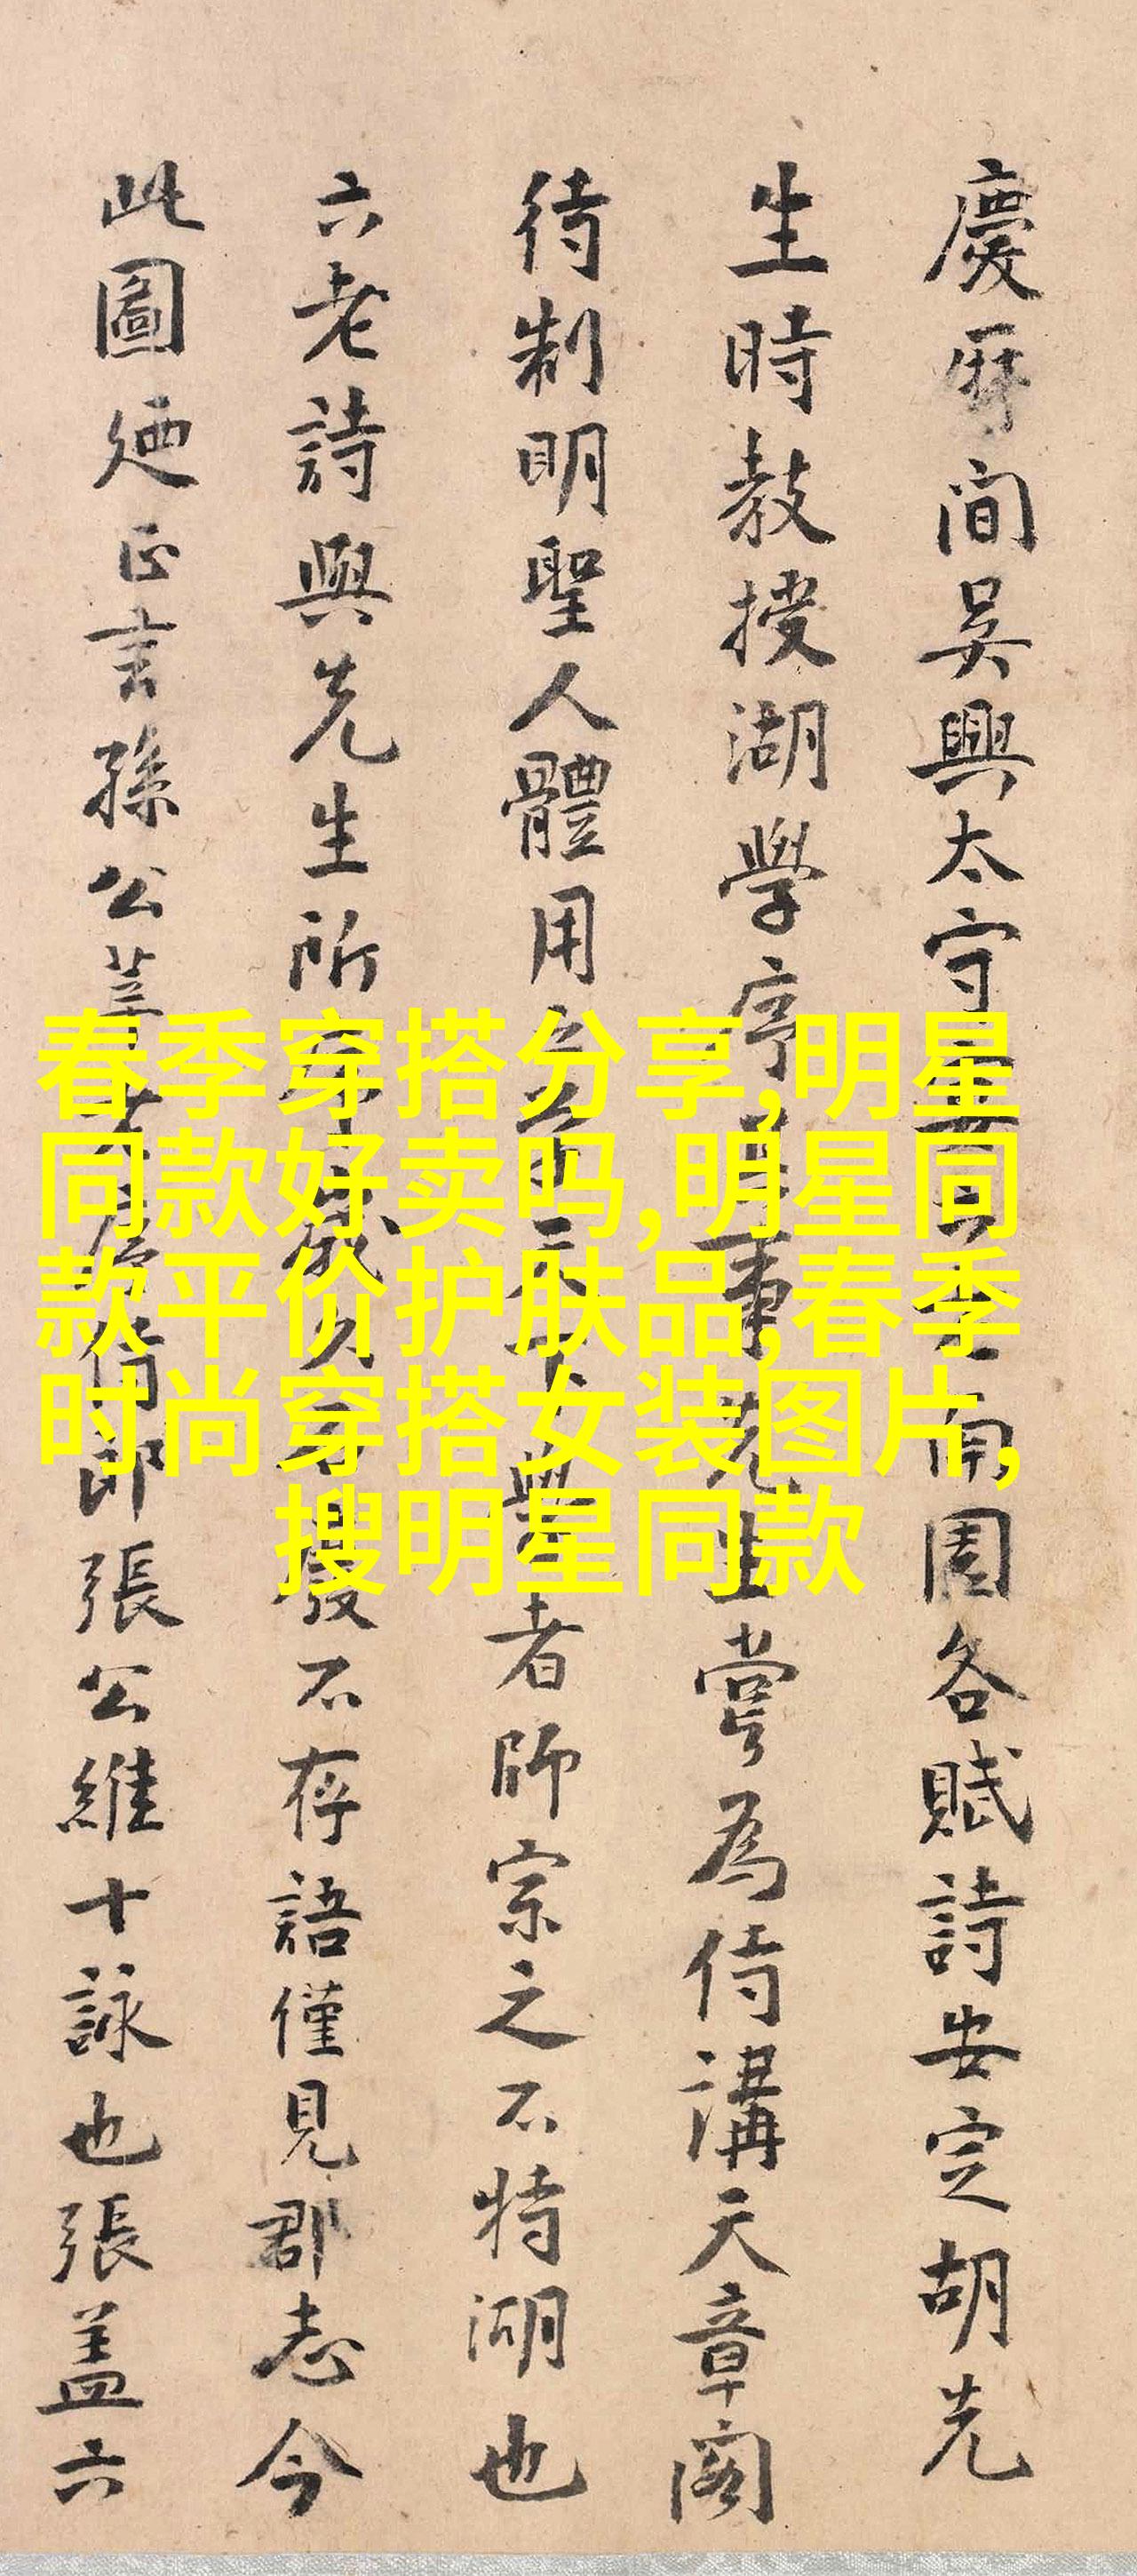 慶曆間吳興太守
園各賦詩安定胡先
生時教授湖學序
事先生嘗為侍講天章閣
待制明聖人體用
者師宗之不特湖也
六老詩與先生所
不存語僅見郡志今
此圖廼正言孫公
侍郎張公維十詠也張蓋六
春季穿搭分享,明星
同款好卖吗,明星同
款平价护肤品,春季
时尚穿搭女装图片,
搜明星同款